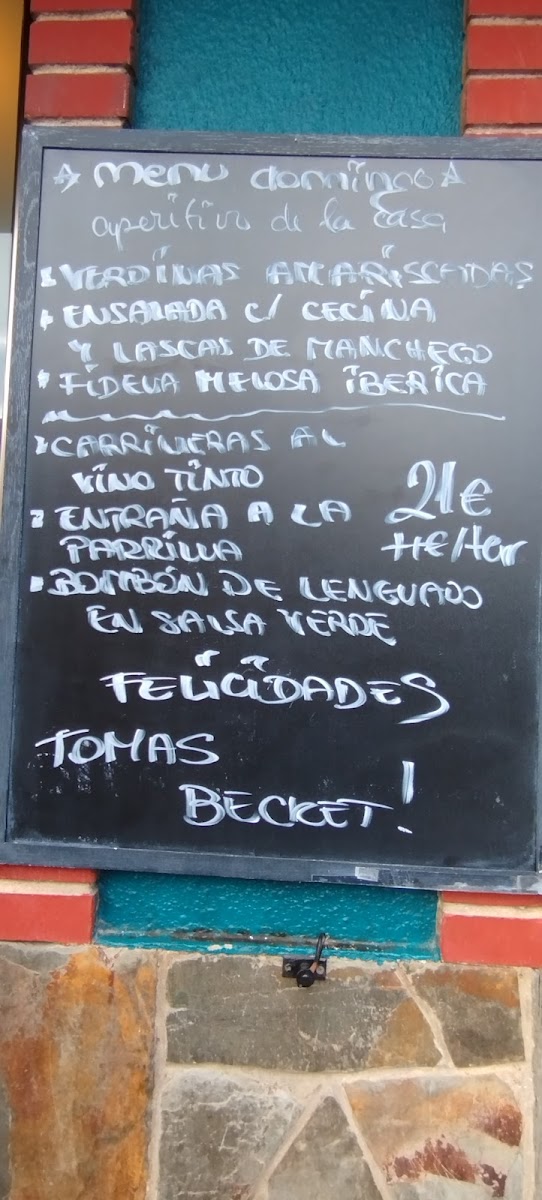 * Menu domingo *
aperitivo de la casa
• VERDINAS AMARISCADAS
• ENSALADA C/ CECINA
Y LASCAS DE MANCHEGO
• FIDEUA MELOSA IBERICA
• CARRILLERAS AL
VINO TINTO
21€
• ENTRAÑA A LA
PARRILLA
• BOMBÓN DE LENGUADO
EN SALSA VERDE
FELICIDADES
TOMAS
BECKET!